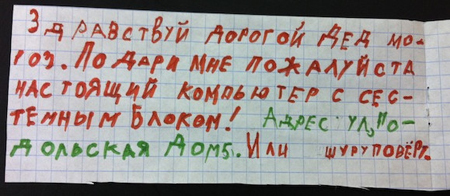 Здравствуй дорогой Дед мо-
роз. Подари мне пожалуйста
настоящий компьютер с сес-
темным блоком! Адрес: ул, по-
дольская дом5. Или шуруповёрт.